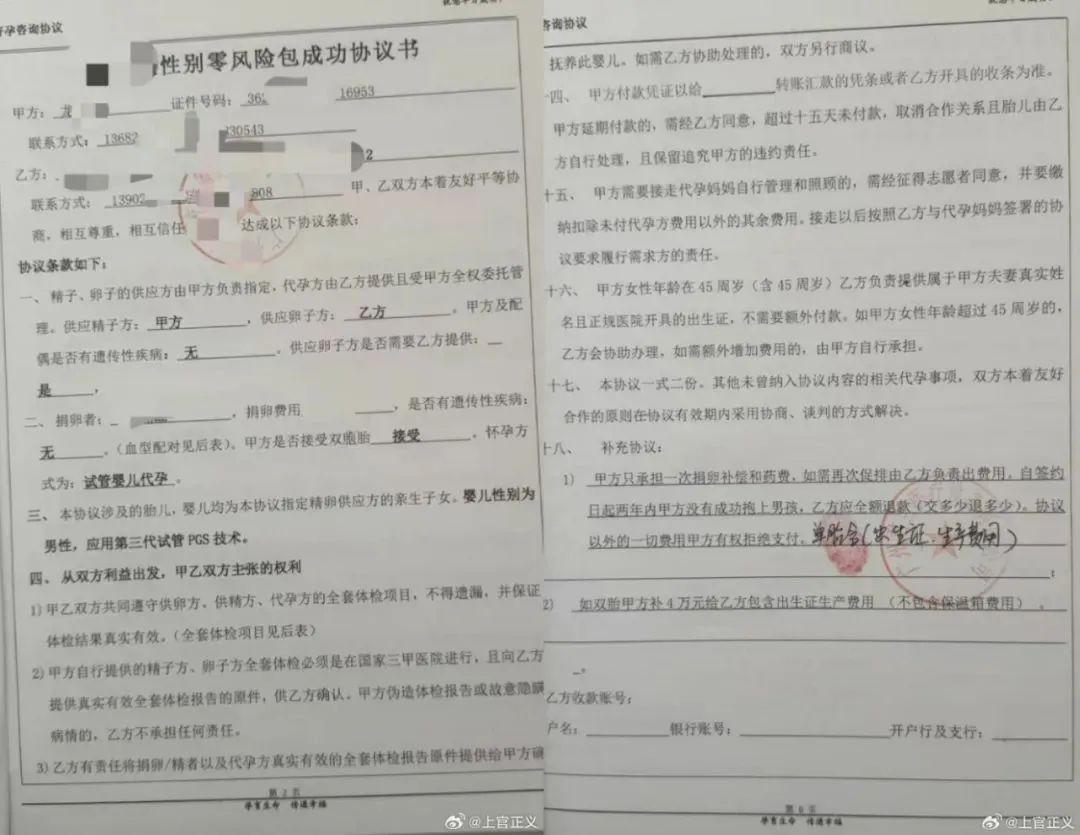 孕咨询协议
性别零风险包成功协议书
甲方：龙 证件号码：36 16953
联系方式：13682 30543
乙方： 2
联系方式：13902 808 甲、乙双方本着友好平等协
商，相互尊重，相互信任 达成以下协议条款：
协议条款如下：
一、 精子、卵子的供应方由甲方负责指定，代孕方由乙方提供且受甲方全权委托管
理。供应精子方： 甲方 ，供应卵子方： 乙方 。甲方及配
偶是否有遗传性疾病： 无 。供应卵子方是否需要乙方提供：
是 ，
二、 捐卵者： ，捐卵费用 ，是否有遗传性疾病：
无 。（血型配对见后表）。甲方是否接受双胞胎 接受 。怀孕方
式为：试管婴儿代孕 。
三、 本协议涉及的胎儿，婴儿均为本协议指定精卵供应方的亲生子女。婴儿性别为
男性，应用第三代试管 PGS 技术。
四、 从双方利益出发，甲乙双方主张的权利
1) 甲乙双方共同遵守供卵方、供精方、代孕方的全套体检项目，不得遗漏，并保证
体检结果真实有效。（全套体检项目见后表）
2) 甲方自行提供的精子方、卵子方全套体检必须是在国家三甲医院进行，且向乙方
提供真实有效全套体检报告的原件，供乙方确认。甲方伪造体检报告或故意隐瞒
病情的，乙方不承担任何责任。
3) 乙方有责任将捐卵/精者以及代孕方真实有效的全套体检报告原件提供给甲方确
第 2 页
孕育生命 传递幸福
@上官正义
咨询协议
抚养此婴儿。如需乙方协助处理的，双方另行商议。
十四、 甲方付款凭证以给 转账汇款的凭条或者乙方开具的收条为准。
甲方延期付款的，需经乙方同意，超过十五天未付款，取消合作关系且胎儿由乙
方自行处理，且保留追究甲方的违约责任。
十五、 甲方需要接走代孕妈妈自行管理和照顾的，需经征得志愿者同意，并要缴
纳扣除未付代孕方费用以外的其余费用。接走以后按照乙方与代孕妈妈签署的协
议要求履行需求方的责任。
十六、 甲方女性年龄在 45 周岁（含 45 周岁）乙方负责提供属于甲方夫妻真实姓
名且正规医院开具的出生证，不需要额外付款。如甲方女性年龄超过 45 周岁的，
乙方会协助办理，如需额外增加费用的，由甲方自行承担。
十七、 本协议一式二份。其他未曾纳入协议内容的相关代孕事项，双方本着友好
合作的原则在协议有效期内采用协商、谈判的方式解决。
十八、 补充协议：
1) 甲方只承担一次捐卵补偿和药费，如需再次促排由乙方负责出费用。自签约
日起两年内甲方没有成功抱上男孩，乙方应全额退款（交多少退多少）。协议
以外的一切费用甲方有权拒绝支付。单胎含（出生证、生产费用）
；
2) 如双胎甲方补 4 万元给乙方包含出生证生产费用 （不包含保温箱费用） 。
。
乙方收款账号：
户名： 银行账号： 开户行及支行：
第 6 页
孕育生命 传递幸福
@上官正义